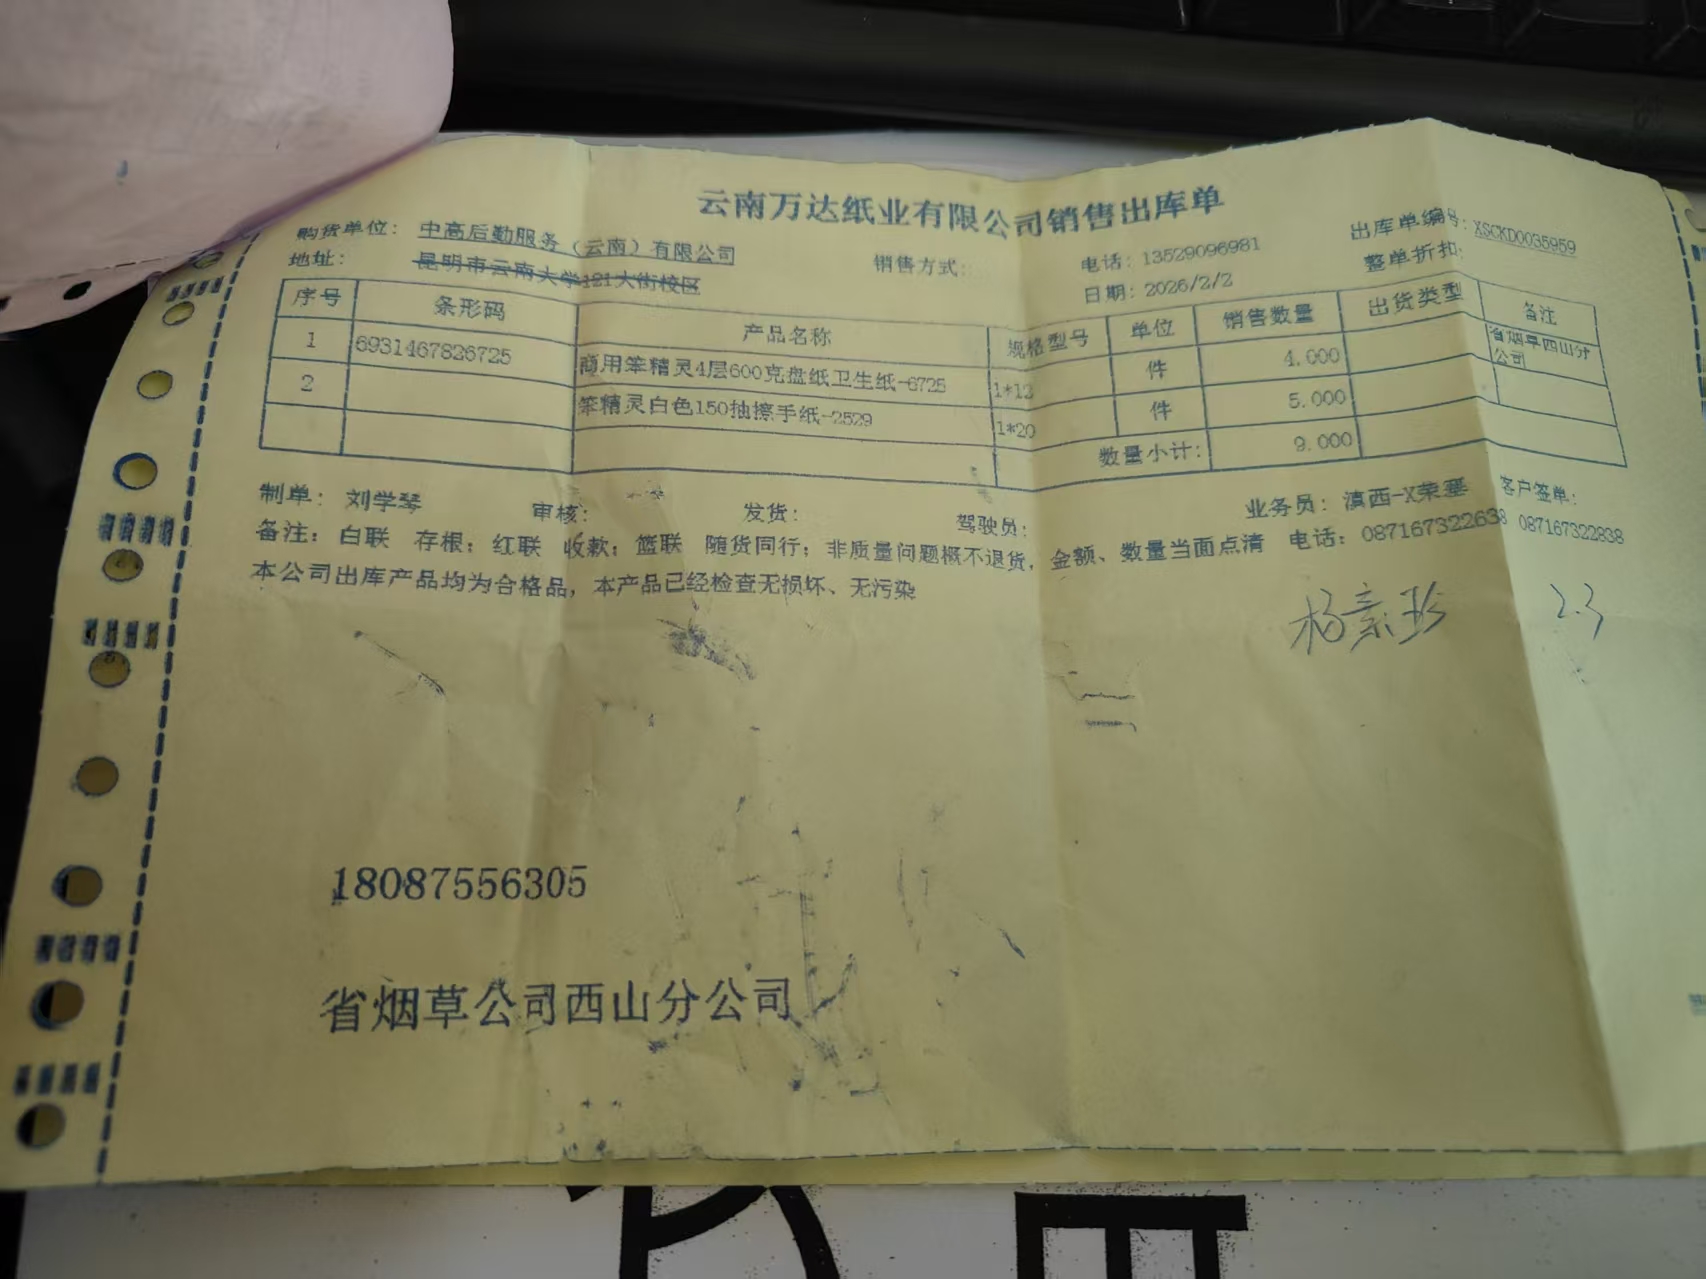 云南万达纸业有限公司销售出库单
购货单位: 中高后勤服务(云南)有限公司 销售方式: 电话: 13529096981 出库单编号: XSCKD0035959
地址: 昆明市云南大学121大街校区 日期: 2026/2/2 整单折扣:
序号 条形码 产品名称 规格型号 单位 销售数量 出货类型 备注
1 6931467826725 商用笨精灵4层600克盘纸卫生纸-6725 1*12 件 4.000 省烟草西山分公司
2 笨精灵白色150抽擦手纸-2529 1*20 件 5.000
数量小计: 9.000
制单: 刘学琴 审核: 发货: 驾驶员: 业务员: 滇西-X荣 客户签单:
备注: 白联 存根; 红联 收款; 篮联 随货同行; 非质量问题概不退货, 金额、数量当面点清 电话: 087167322638 087167322838
本公司出库产品均为合格品, 本产品已经检查无损坏、无污染
杨 2.3
18087556305
省烟草公司西山分公司